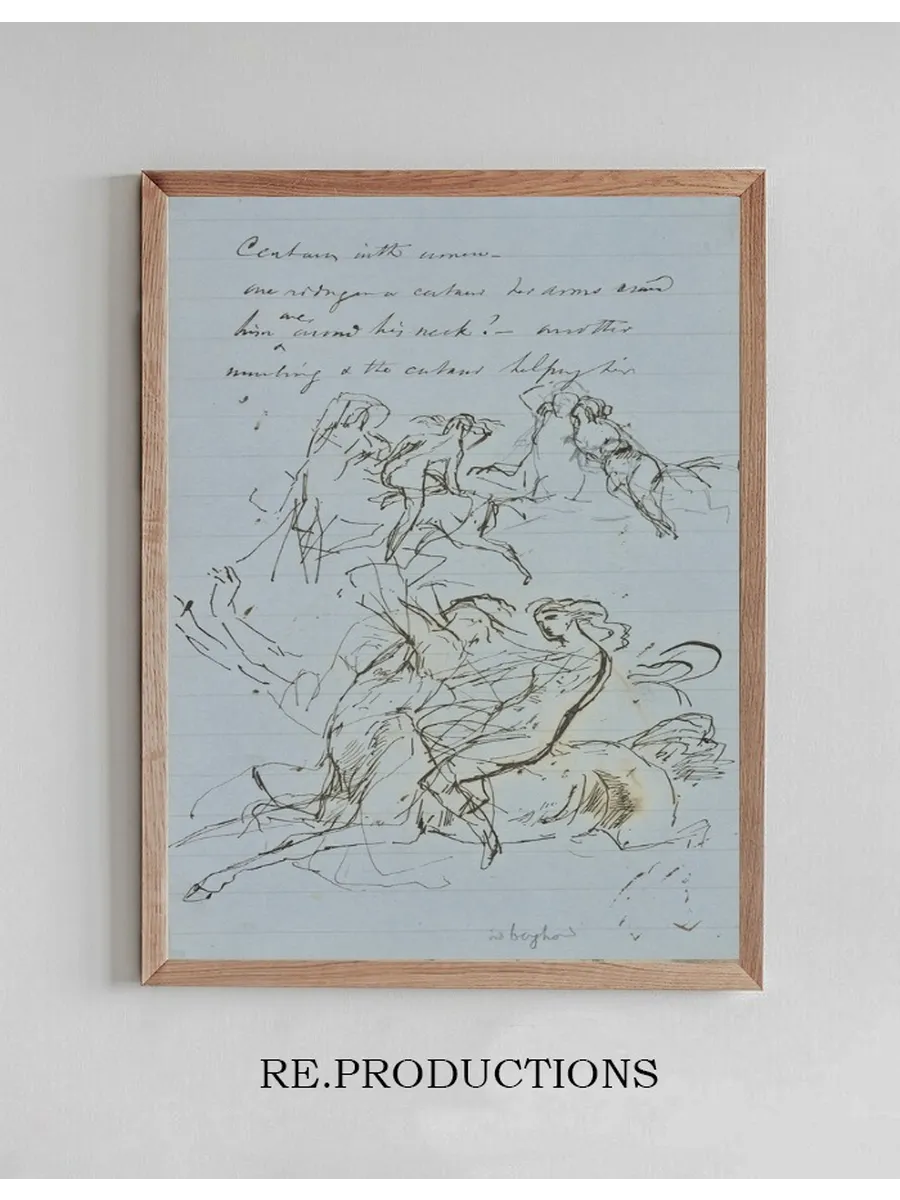 Centaurs with women—
one riding on a centaur her arms round
him around his neck? — another
mounting & the centaur helping her
RE.PRODUCTIONS